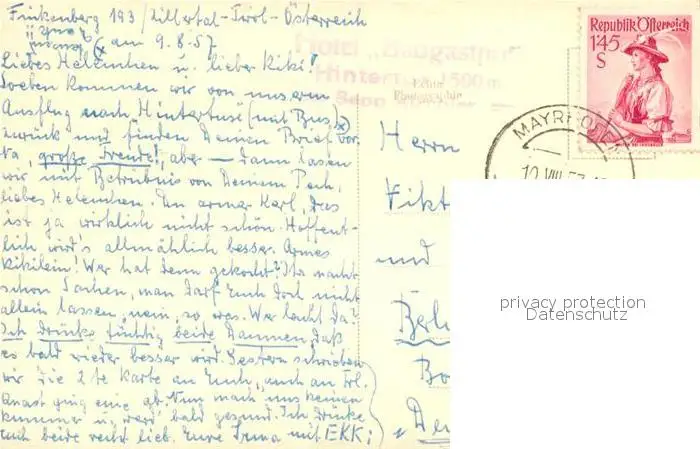 Finkenberg 193/Zillertal-Tirol-Österreich
am 9.8.57
Liebes Helenchen u. lieber Kiki!
Soeben kommen wir von unserem
Ausflug nach Hintertux (mit Bus)
zurück und finden Deinen Brief vor.
Na, große Freude!, aber — dann lasen
wir mit Betrübnis von Deinem Pech,
liebes Helenchen. Du armer Kerl, das
ist ja wirklich nicht schön. Hoffent-
lich wird's allmählich besser. Armes
Kikilein! Wer hat denn gekocht? Ihr macht
schon Sachen, man darf Euch doch nicht
allein lassen, nein, so was. Wer lacht da?
Ich drücke tüchtig beide Daumen, daß
es bald wieder besser wird. Gestern schrieben
wir die 2te Karte an Euch, auch an Frl.
ging eine ab. Nun mach uns keinen
Kummer u. werd' bald gesund. Ich drücke
Euch beide recht lieb. Eure Irma mit EKK;
Hotel „Badgasthof"
Hintertux 1500 m
Echte
Photographie
Republik Österreich
1.45
S
MAYRHOFEN
10.VIII.57
Herrn
Vikt
und
privacy protection
Datenschutz